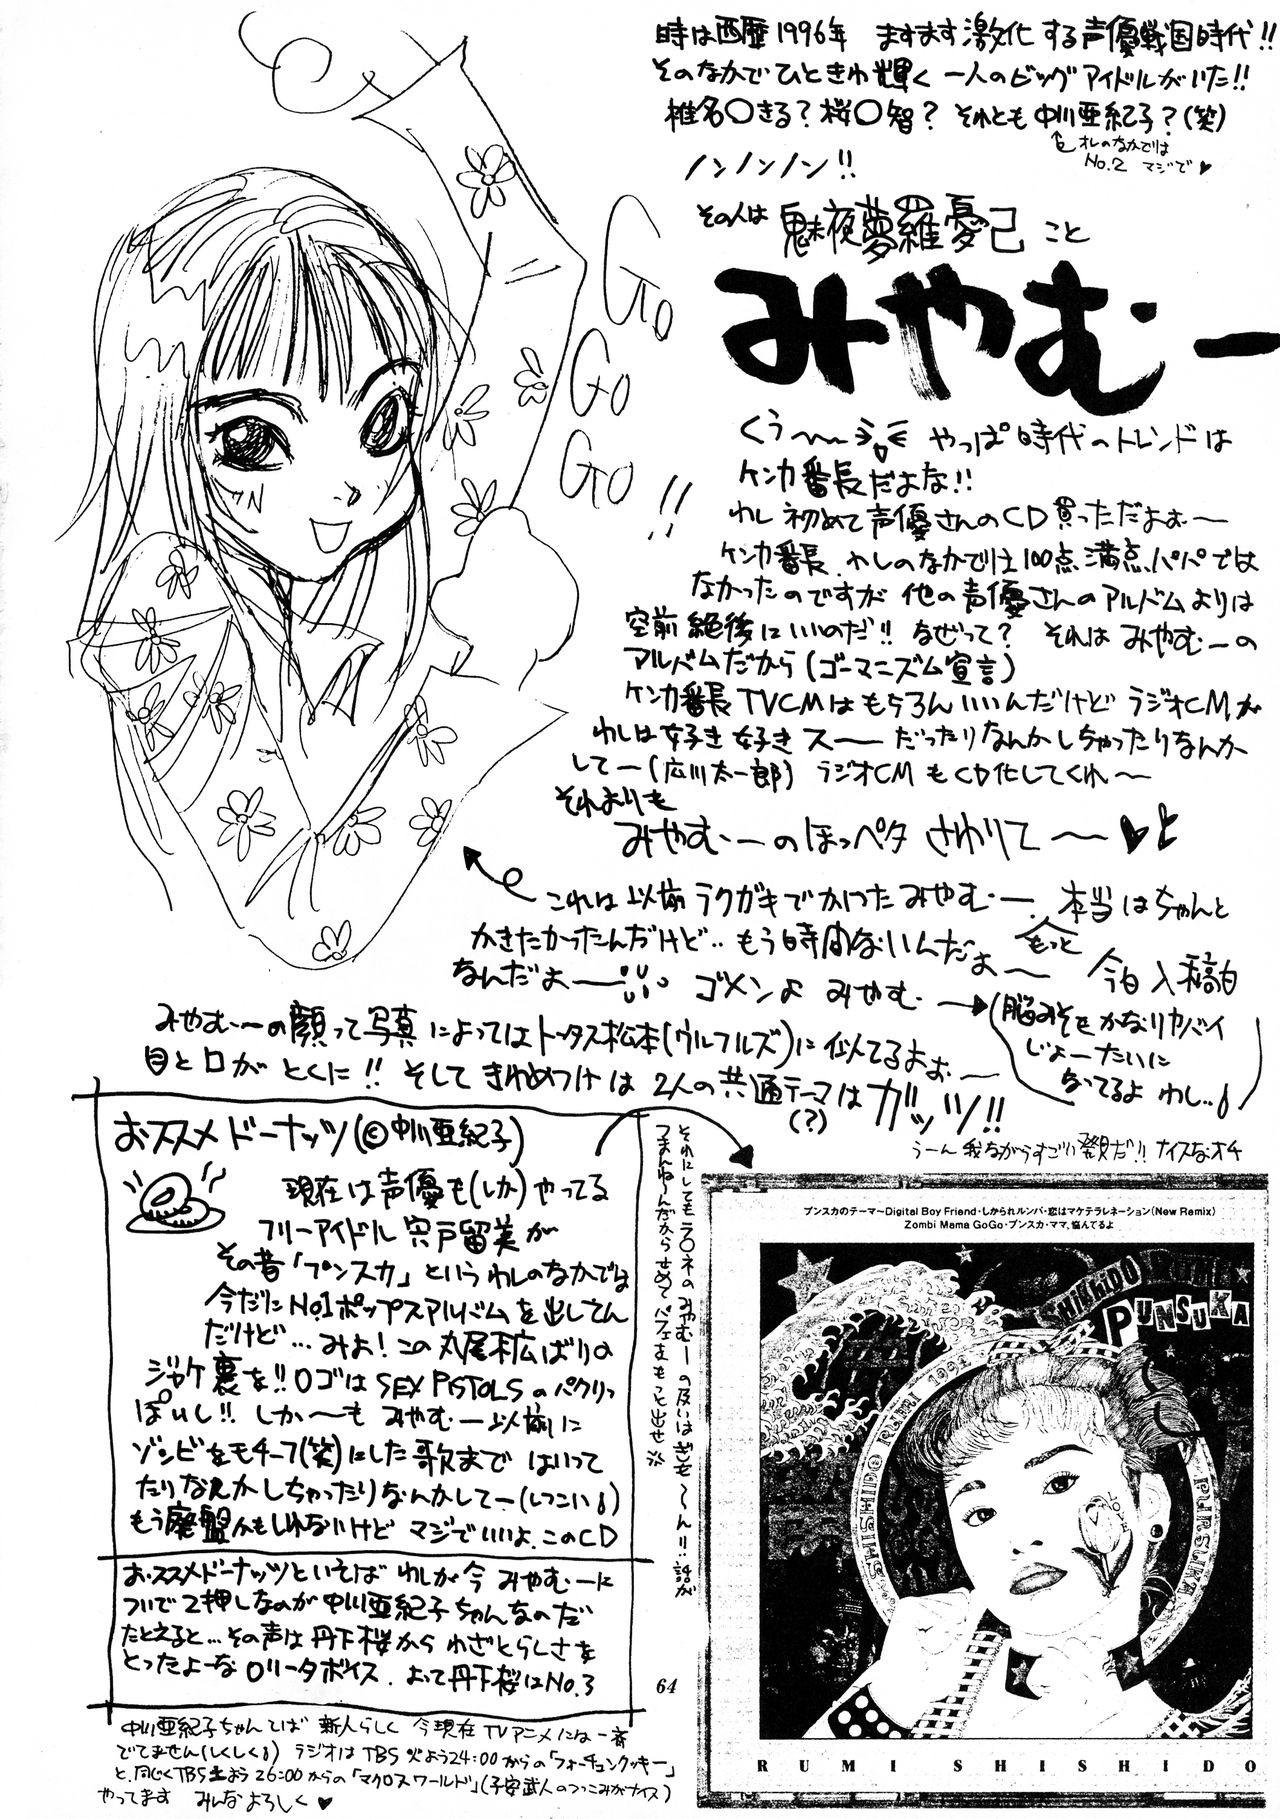 時は西暦1996年 ますます激化する声優戦国時代!!
そのなかでひときわ輝く 一人のビッグアイドルがいた!!
椎名○きる?桜○智? それとも中川亜紀子?(笑)
オレのなかでは
No.2 マジで♥
ノンノンノン!!
その人は 魅夜夢羅憂己 こと
みやむー
Go
Go
Go
!!
くぅ〜〜 やっぱ時代のトレンドは
ケンカ番長だよな!!
わし初めて声優さんのCD買っただよぉ〜
ケンカ番長、わしのなかでは100点満点パパでは
なかったのですが他の声優さんのアルバムよりは
空前絶後にいいのだ!! なぜって? それはみやむーの
アルバムだから(ゴーマニズム宣言)
ケンカ番長TVCMはもちろんいいんだけどラジオCMが
わしは好き好きス〜〜だったりなんかしちゃったりなんか
してー(広川太一郎) ラジオCMもCD化してくれ〜
それよりも
みやむーのほっペタ さわりて〜〜♥と
これは以前ラクガキでかいたみやむー、本当はちゃんと
もっと
かきたかったんだけど‥もう時間ないんだよ〜
なんだよ〜 ゴメンよ みやむ→
今日入稿日
(脳みそもかなりヤバイ
じょーたいに
なってるよ わし‥)
みやむーの顔って写真によってはトータス松本(ウルフルズ)に似てるよぉ〜
目と口がとくに!! そしてきわめつけは2人の共通テーマはガッツ!!
(?)
うーん我ながらすごい発見だ!! ナイスなオチ
おススメドーナッツ(©中川亜紀子)
現在は声優も(しか)やってる
フリーアイドル宍戸留美が
その昔「プンスカ」というわしのなかでは
今だにNo.1ポップスアルバムを出してん
だけど…みよ!この丸尾末広ばりの
ジャケ裏を!! ロゴはSEX PISTOLSのパクリっ
ぽいし!! しか〜も みやむー以前に
ゾンビをモチーフ(笑)にした歌まではいって
たりなんかしちゃったりなんかしてー(しつこい)
もう廃盤かもしれないけど マジでいいよ、このCD
おススメドーナッツといえば わしが今みやむーに
ついで2押しなのが中川亜紀子ちゃんなのだ
たとえると…その声は丹下桜からわざとらしさを
とったよーなロリータボイス、よって丹下桜はNo.3
中川亜紀子ちゃんてば 新人らしく 今現在TVアニメには一斉
でてません(しくしく) ラジオはTBS火よう24:00からの「フォーチュンクッキー」
と、同じくTBS土よう26:00からの「マクロスワールド」(子安武人のつっこみがナイス)
やってます みんなよろしく♥
それにしてもラ○ネのみやむーの扱いはぎも〜ん!! 話が
つまんねーんだからせめてパフェをもっと出せ
64
プンスカのテーマ〜Digital Boy Friend・しかられルンバ・恋はマケテラレネーション(New Remix)
Zombi Mama GoGo・プンスカ・ママ、悩んでるよ
SHISHIDO RUMI
PUNSUKA
SHISHIDO RUMI 1992
PUNSUKA
LOVE
RUMI SHISHIDO